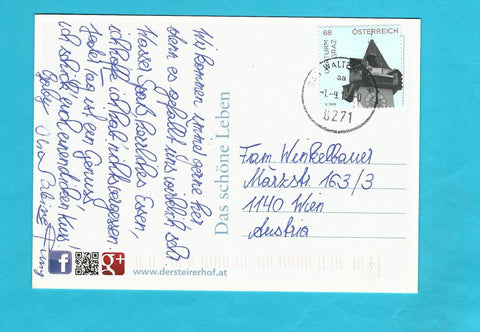 Wir kommen immer gerne her
denn es gefällt uns wirklich sehr
Spaß
Essen,
ich hoffe ich hab nichts vergessen.
Jeder Tag ist ein Genuss
ich schick euch einen dicken Kuss!
Das schöne Leben
68
ÖSTERREICH
UHRTURM
GRAZ
8271
Fam. Winkelbauer
Märzstr. 163/3
1140 Wien
Austria
f
g+
www.dersteirerhof.at